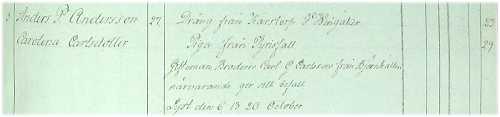 3 Anders P. Andersson 27. Dräng från Karstorp S. Wingåker 23
Carolina Carlsdotter Piga från Fyrisfall 29
Giftoman Brodern Carl G Carlsson från Björnhällen
närvarande ger sitt bifall
Lyst den 6 13 20 October